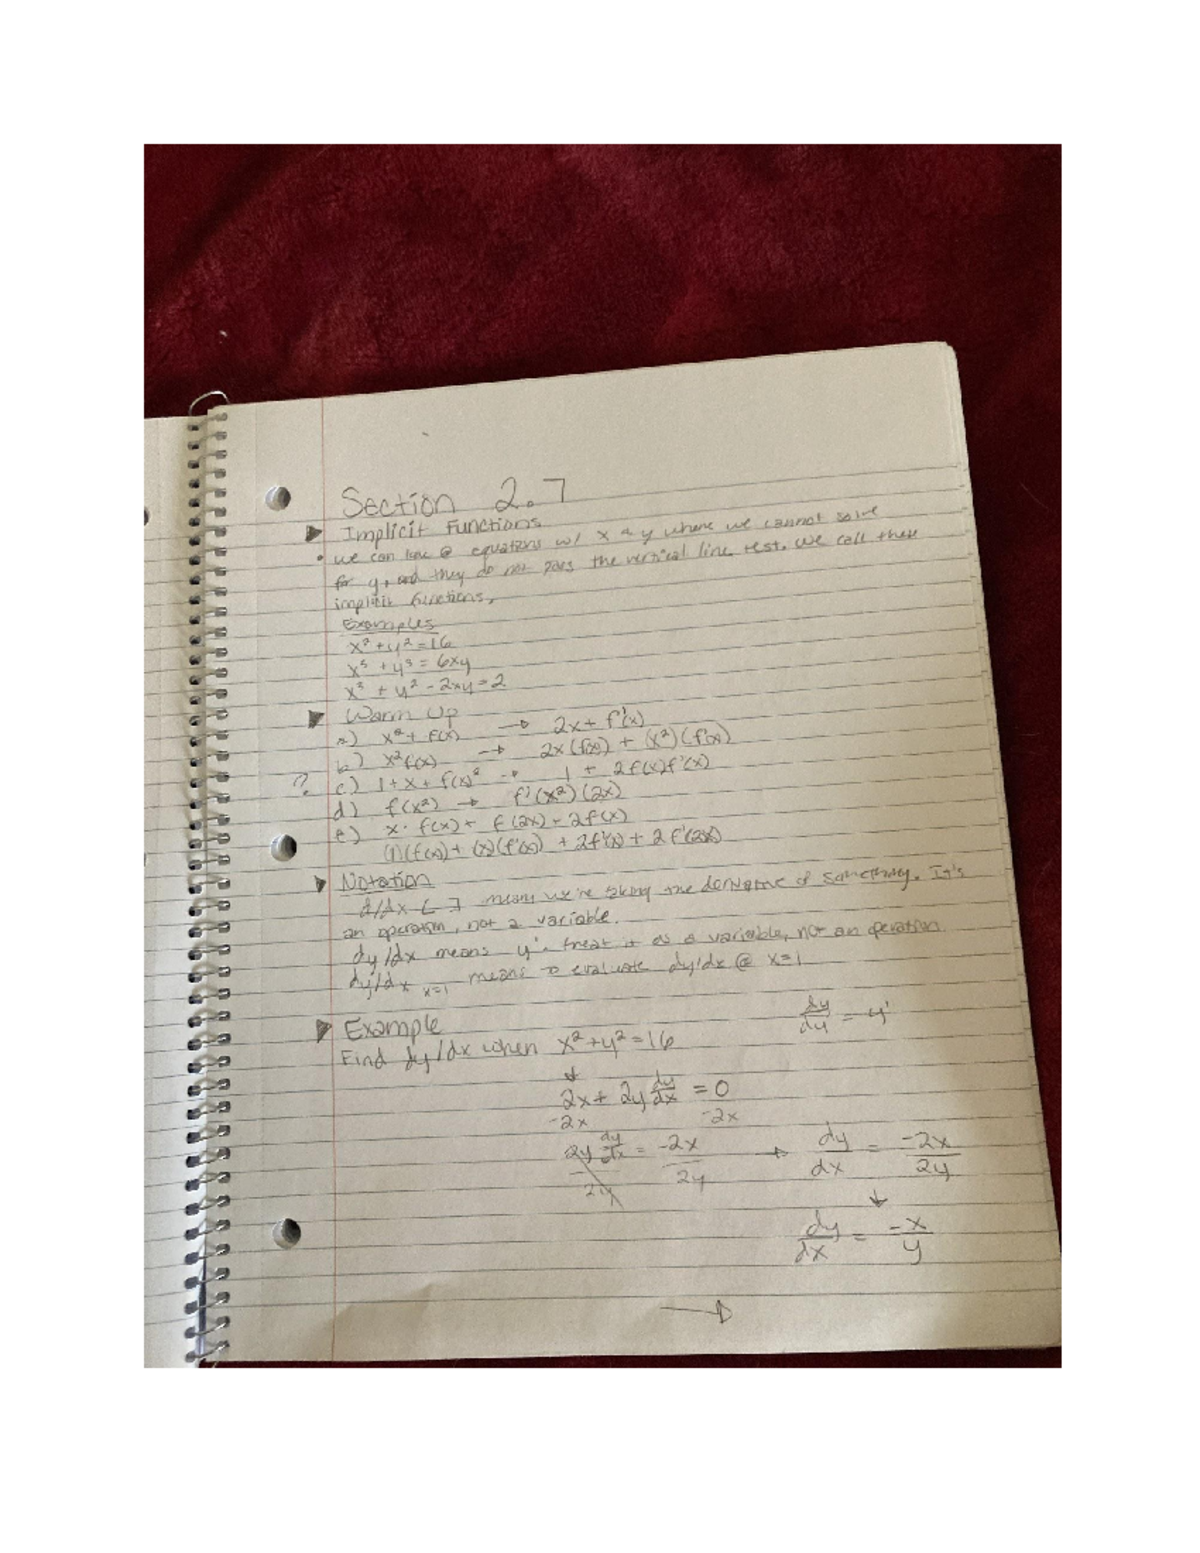 Section 2.7
Implicit Functions
• we can have @ equations w/ x & y where we cannot solve
for y, and they do not pass the vertical line test. We call these
implicit functions,
Examples
x² + y² = 16
x⁵ + y³ = 6xy
x³ + y² - 2xy = 2
Warm Up
a) x² + f(x) → 2x + f'(x)
b) x²f(x) → 2x(f(x)) + (x²)(f'(x))
? c) 1 + x + f(x)² → 1 + 2f(x)f'(x)
d) f(x²) → f'(x²)(2x)
e) x · f(x) + f(2x) - 2f(x)
(1)(f(x)) + (x)(f'(x)) + 2f'(x) + 2f'(2x)
Notation
d/dx [ ] means we're taking the derivative of something. It's
an operation, not a variable.
dy/dx means y'. treat it as a variable, not an operation
dy/dx x=1 means to evaluate dy/dx @ x=1
Example
dy/dy = y'
Find dy/dx when x² + y² = 16
↓
2x + 2y dy/dx = 0
-2x -2x
2y dy/dx / 2y = -2x/2y → dy/dx = -2x/2y
↓
dy/dx = -x/y
→